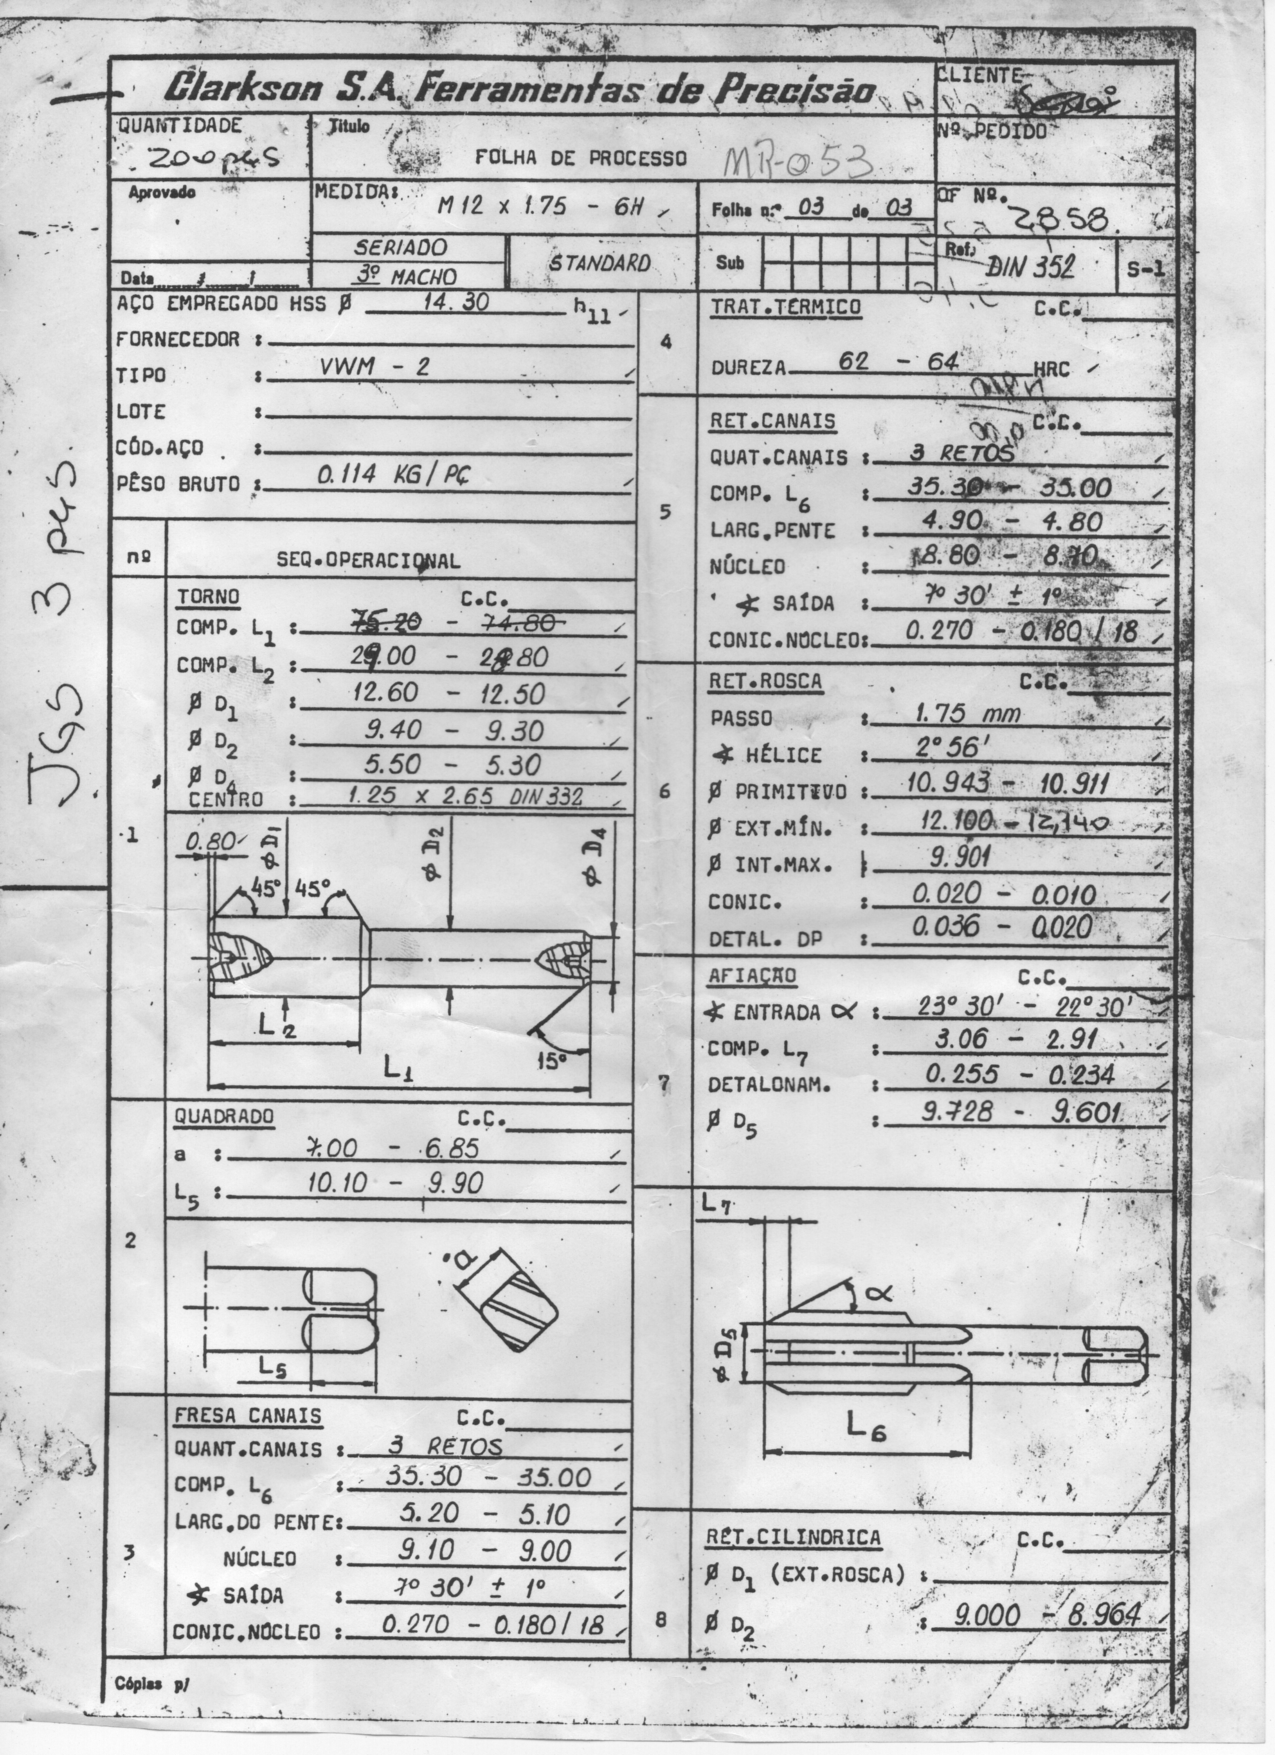 Clarkson S.A. Ferramentas de Precisão
CLIENTE
QUANTIDADE
200 pçs
Título
FOLHA DE PROCESSO
MR-053
Nº PEDIDO
Aprovado
Data
MEDIDA:
M12 x 1.75 - 6H
SERIADO
3º MACHO
STANDARD
Folha n.º 03 de 03
Sub
OF Nº.
2858.
Ref.
DIN 352
S-1
JGS 3 pçs.
AÇO EMPREGADO HSS Ø 14.30 h11
FORNECEDOR :
TIPO : VWM - 2
LOTE :
CÓD.AÇO :
PÊSO BRUTO : 0.114 KG/PÇ
nº
SEQ.OPERACIONAL
1
TORNO C.C.
COMP. L1 : 75.20 - 74.80
COMP. L2 : 29.00 - 28.80
Ø D1 : 12.60 - 12.50
Ø D2 : 9.40 - 9.30
Ø D4 : 5.50 - 5.30
CENTRO : 1.25 x 2.65 DIN 332
0.80
Ø D1
Ø D2
Ø D4
45° 45°
L2
L1
15°
2
QUADRADO C.C.
a : 7.00 - 6.85
L5 : 10.10 - 9.90
a
L5
3
FRESA CANAIS C.C.
QUANT.CANAIS : 3 RETOS
COMP. L6 : 35.30 - 35.00
LARG.DO PENTE: 5.20 - 5.10
NÚCLEO : 9.10 - 9.00
∢ SAÍDA : 7º 30' ± 1º
CONIC.NÚCLEO : 0.270 - 0.180/18
4
TRAT.TÉRMICO C.C.
DUREZA 62 - 64 HRC
5
RET.CANAIS C.C.
QUAT.CANAIS : 3 RETOS
COMP. L6 : 35.30 - 35.00
LARG.PENTE : 4.90 - 4.80
NÚCLEO : 8.80 - 8.70
∢ SAÍDA : 7º 30' ± 1º
CONIC.NÚCLEO: 0.270 - 0.180/18
6
RET.ROSCA C.C.
PASSO : 1.75 mm
∢ HÉLICE : 2º 56'
Ø PRIMITIVO : 10.943 - 10.911
Ø EXT.MÍN. : 12.100 - 12,140
Ø INT.MAX. : 9.901
CONIC. : 0.020 - 0.010
DETAL. DP : 0.036 - 0.020
7
AFIAÇÃO C.C.
∢ ENTRADA α : 23º 30' - 22º 30'
COMP. L7 : 3.06 - 2.91
DETALONAM. : 0.255 - 0.234
Ø D5 : 9.728 - 9.601
L7
α
Ø D5
L6
8
RET.CILINDRICA C.C.
Ø D1 (EXT.ROSCA) :
Ø D2 : 9.000 - 8.964
Cópias p/